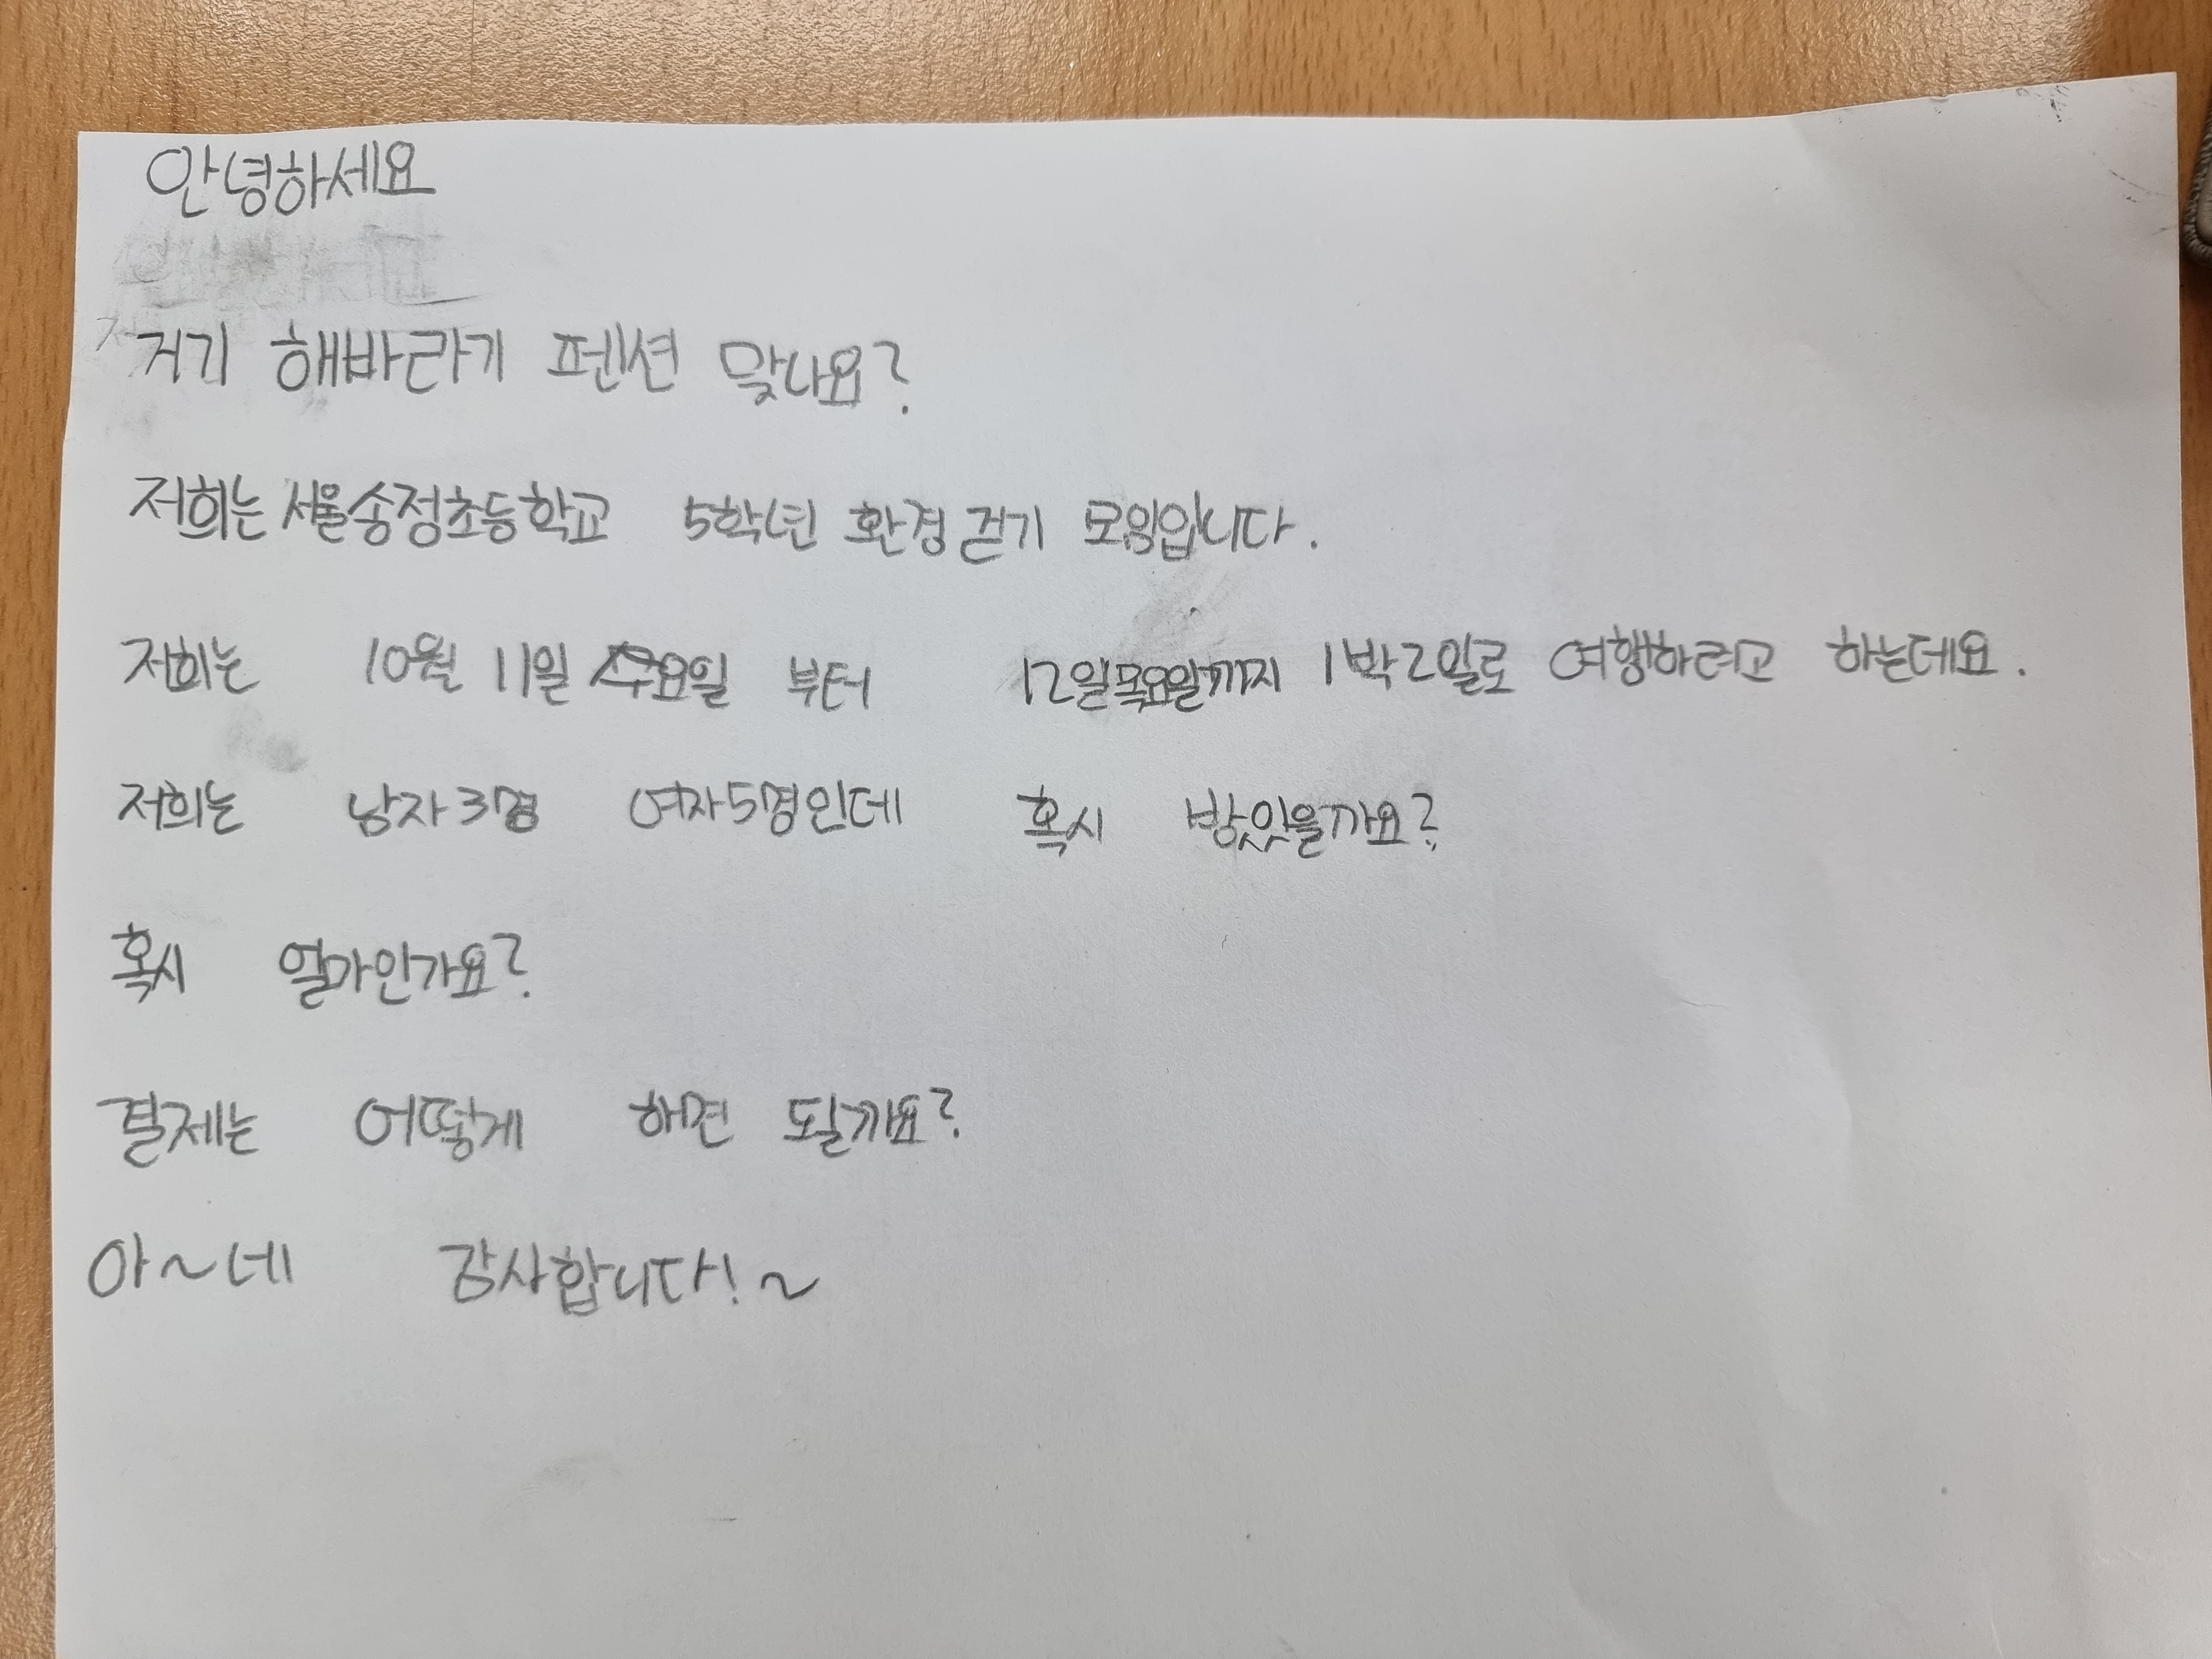 안녕하세요
거기 해바라기 펜션 맞나요?
저희는 서울송정초등학교 5학년 환경걷기 모임입니다.
저희는 10월 11일 수요일 부터 12일목요일까지 1박2일로 여행하려고 하는데요.
저희는 남자3명 여자5명인데 혹시 방있을까요?
혹시 얼마인가요?
결제는 어떻게 하면 될까요?
아~네 감사합니다!~